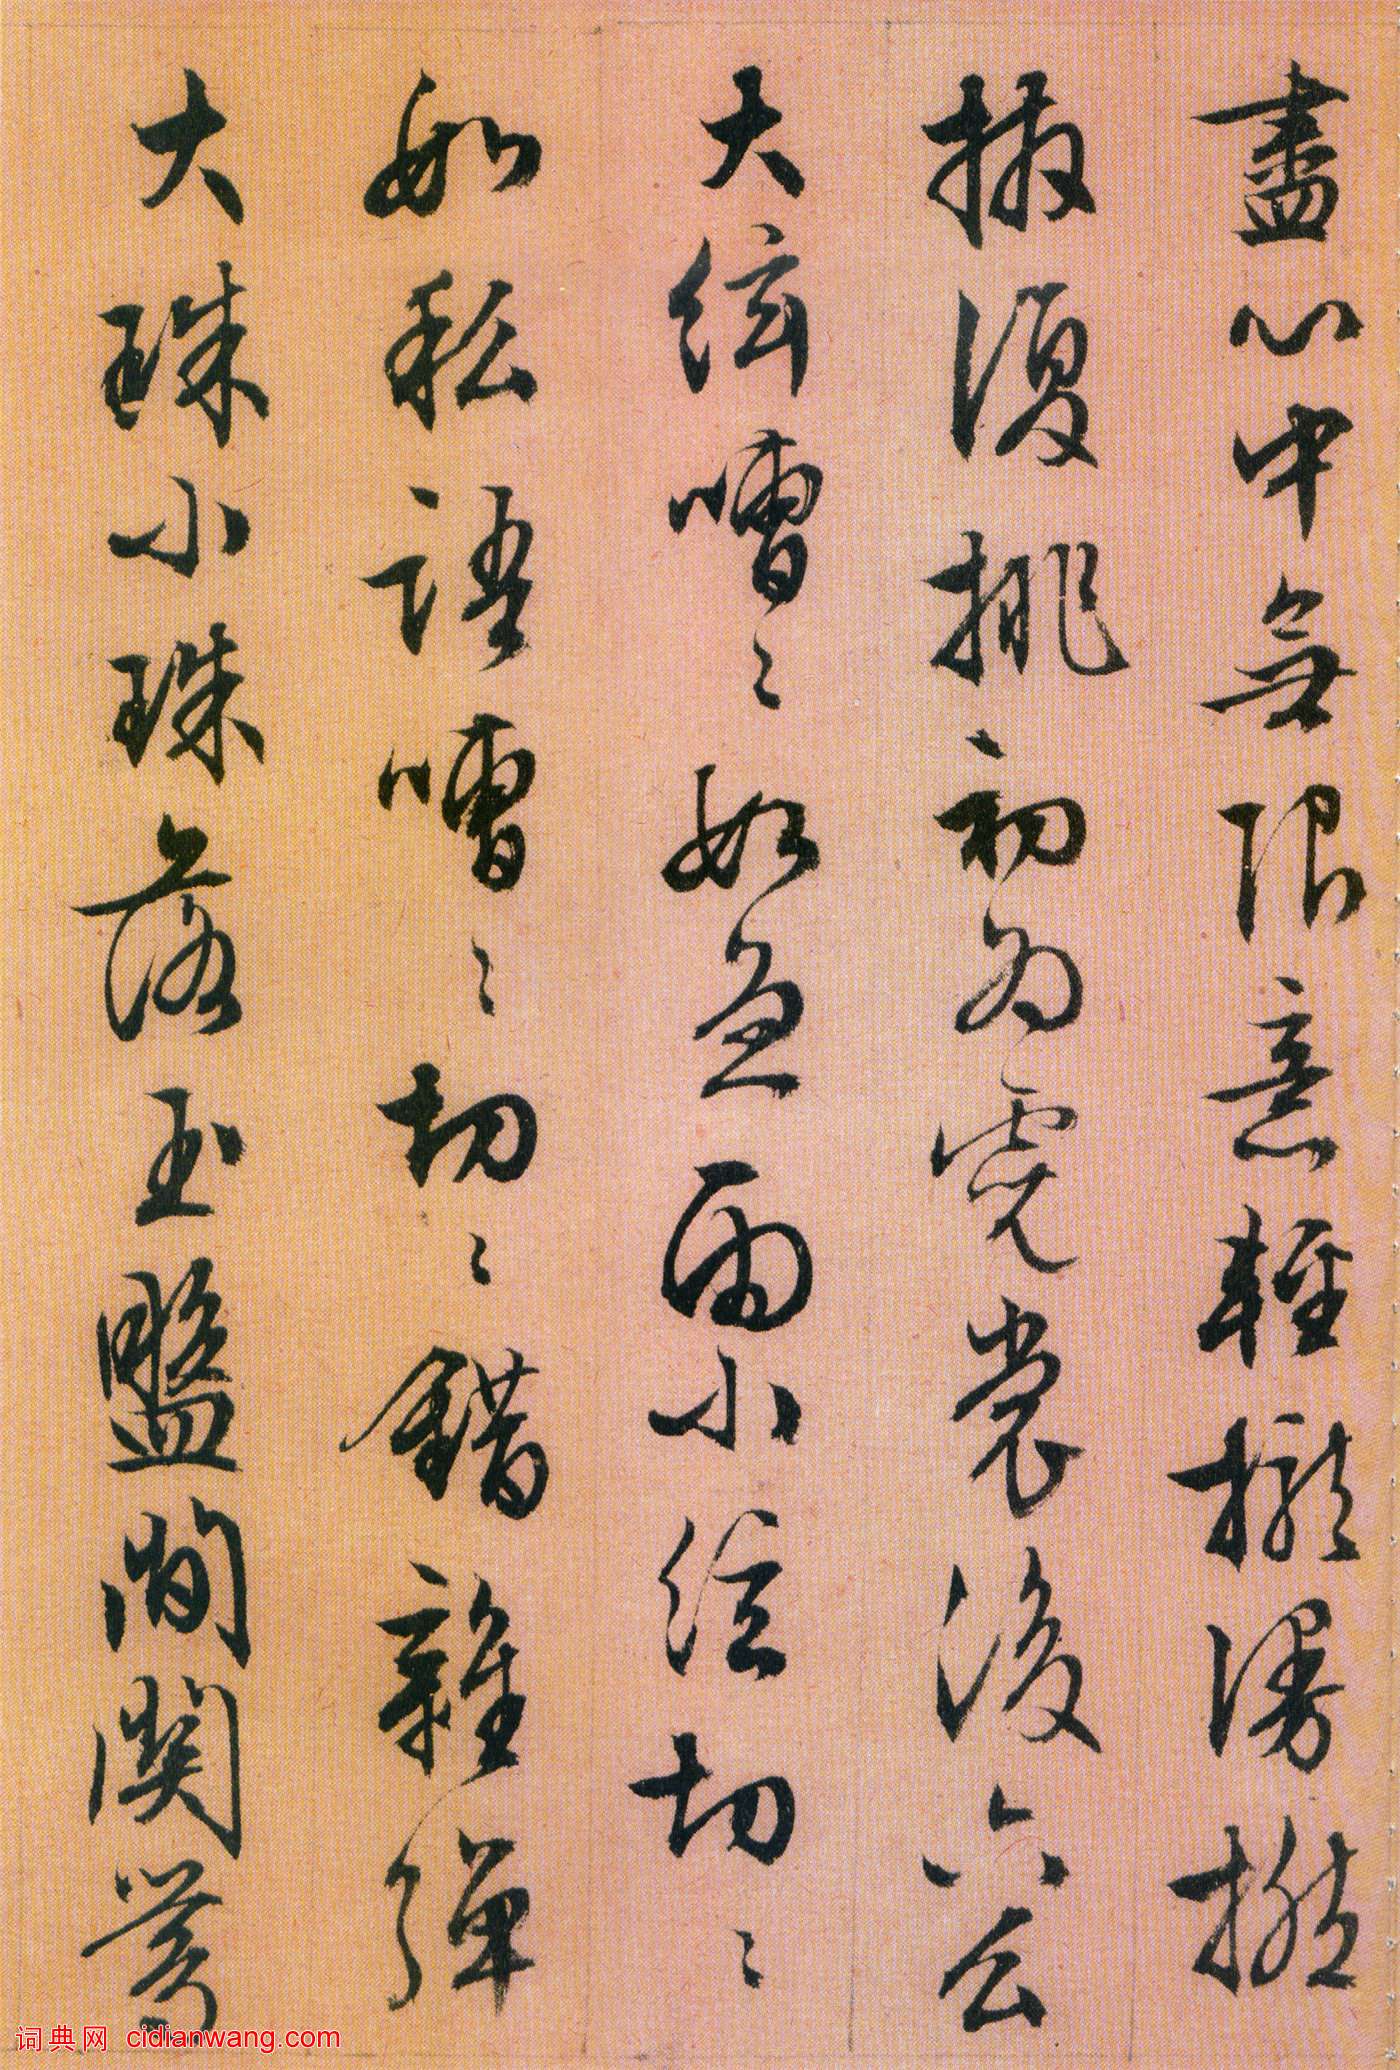 盡心中無限意輕攏漫撚
撥復挑初為霓裳後六么
大絃嘈々如急雨小絃切々
如私語嘈々切々錯雜彈
大珠小珠落玉盤間關鶯
词典网 cidianwang.com